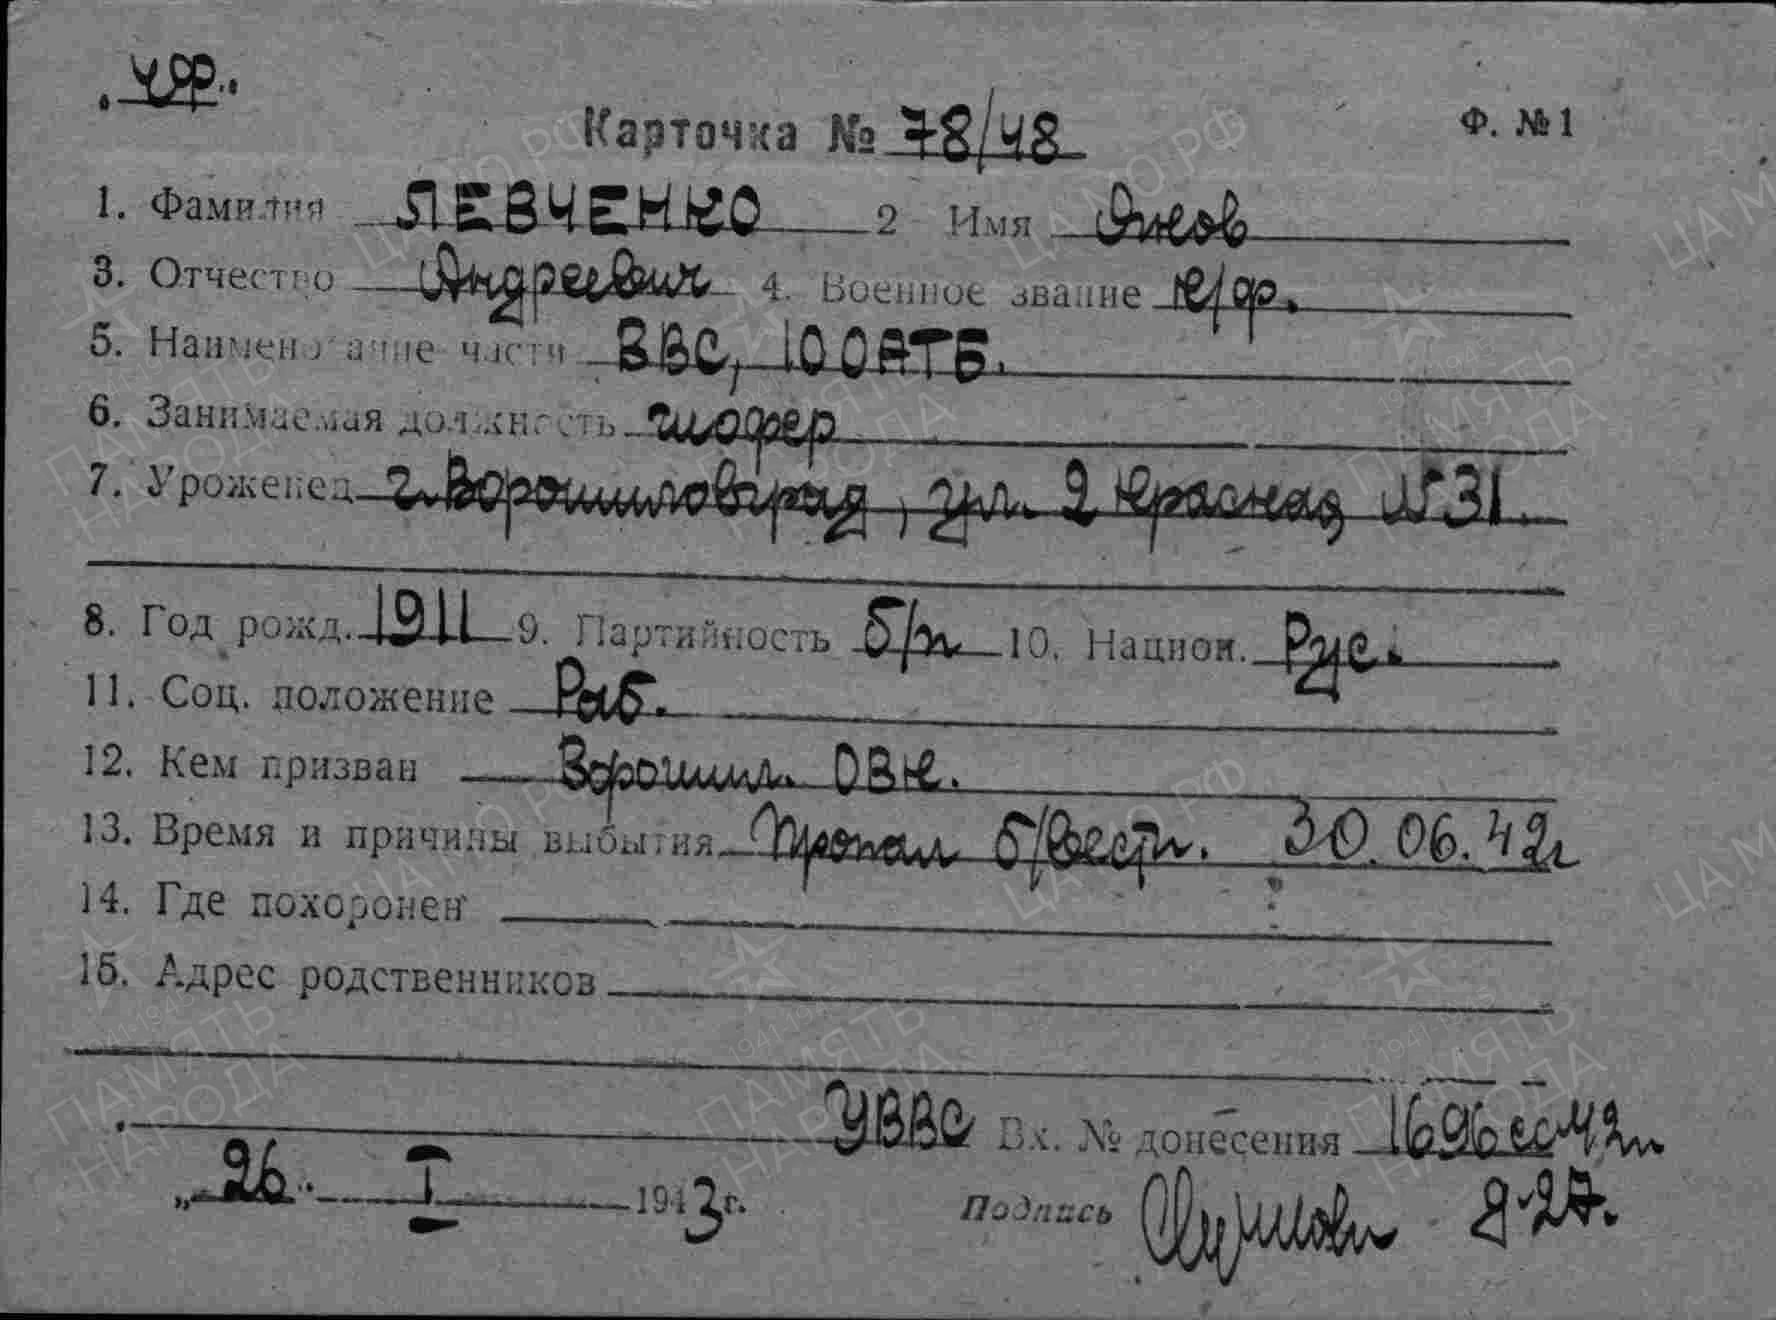 Карточка № 78/48 Ф. №1
1. Фамилия ЛЕВЧЕНКО 2 Имя Яков
3. Отчество Андреевич 4. Военное звание к/ф.
5. Наименование части ВВС, 100АТБ.
6. Занимаемая должность шофер
7. Уроженец г. Ворошиловград, ул. 2 Красная №31.
8. Год рожд. 1911 9. Партийность б/п 10. Национ. Рус.
11. Соц. положение Раб.
12. Кем призван Ворошил. ОВК.
13. Время и причины выбытия Пропал б/вести. 30.06.42г
14. Где похоронен
15. Адрес родственников
УВВС Вх. № донесения 1696
„26" I 1943г. Подпись
ЦАМО РФ
ПАМЯТЬ НАРОДА
1941-1945